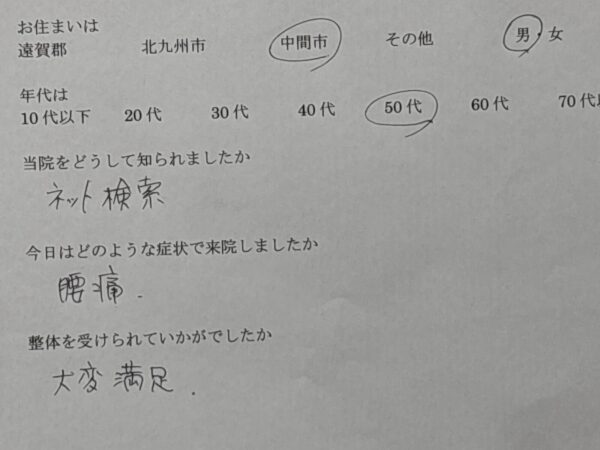 お住まいは
遠賀郡 北九州市 中間市 その他 男・女
年代は
10代以下 20代 30代 40代 50代 60代 70代以
当院をどうして知られましたか
ネット検索
今日はどのような症状で来院しましたか
腰痛.
整体を受けられていかがでしたか
大変満足.